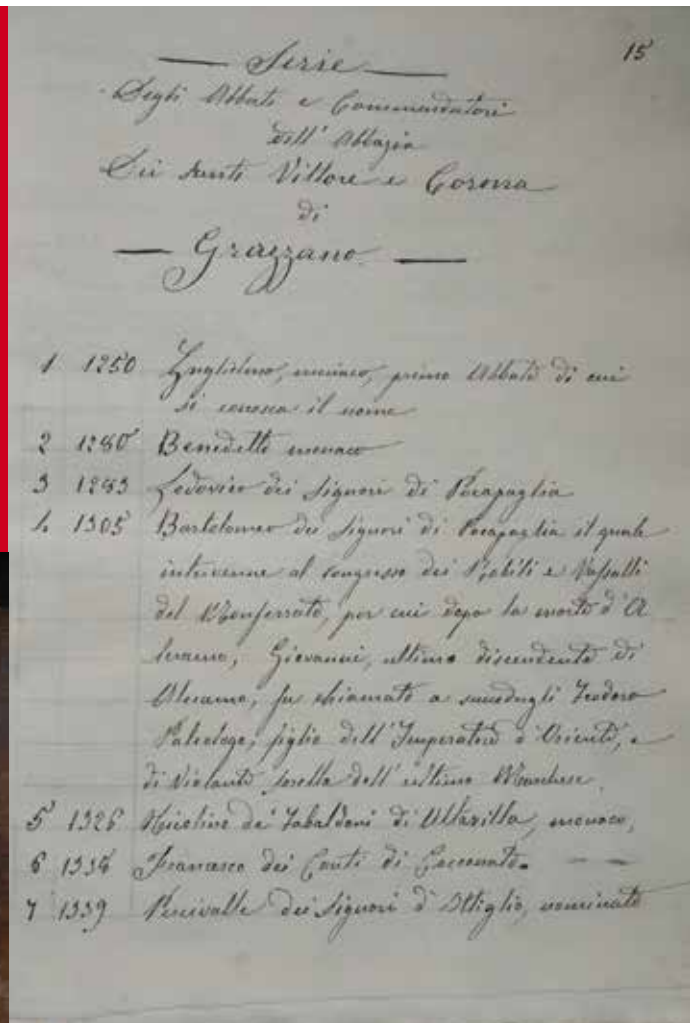 15
Serie
Degli Abbati e Commendatori
dell' Abbazia
Dei Santi Vittore e Corona
di
Grazzano
1 1250 Guglielmo, monaco, primo Abbate di cui
si conosca il nome
2 1280 Benedetto monaco
3 1283 Lodovico dei Signori di Pocapaglia
4. 1305 Bartolomeo dei Signori di Pocapaglia il quale
intervenne al congresso dei Nobili e Vassalli
del Monferrato, per cui dopo la morte d'A
leramo, Giovanni, ultimo discendente di
Aleramo, fu chiamato a succedergli Teodoro
Paleologo, figlio dell' Imperatore d'Oriente, e
di Violante sorella dell' ultimo Marchese.
5 1326 de' di Altavilla, monaco,
6 1338 Francesco dei Conti di Cocconato.
7 1339 Percivalle dei Signori d'Ottiglio, nominato